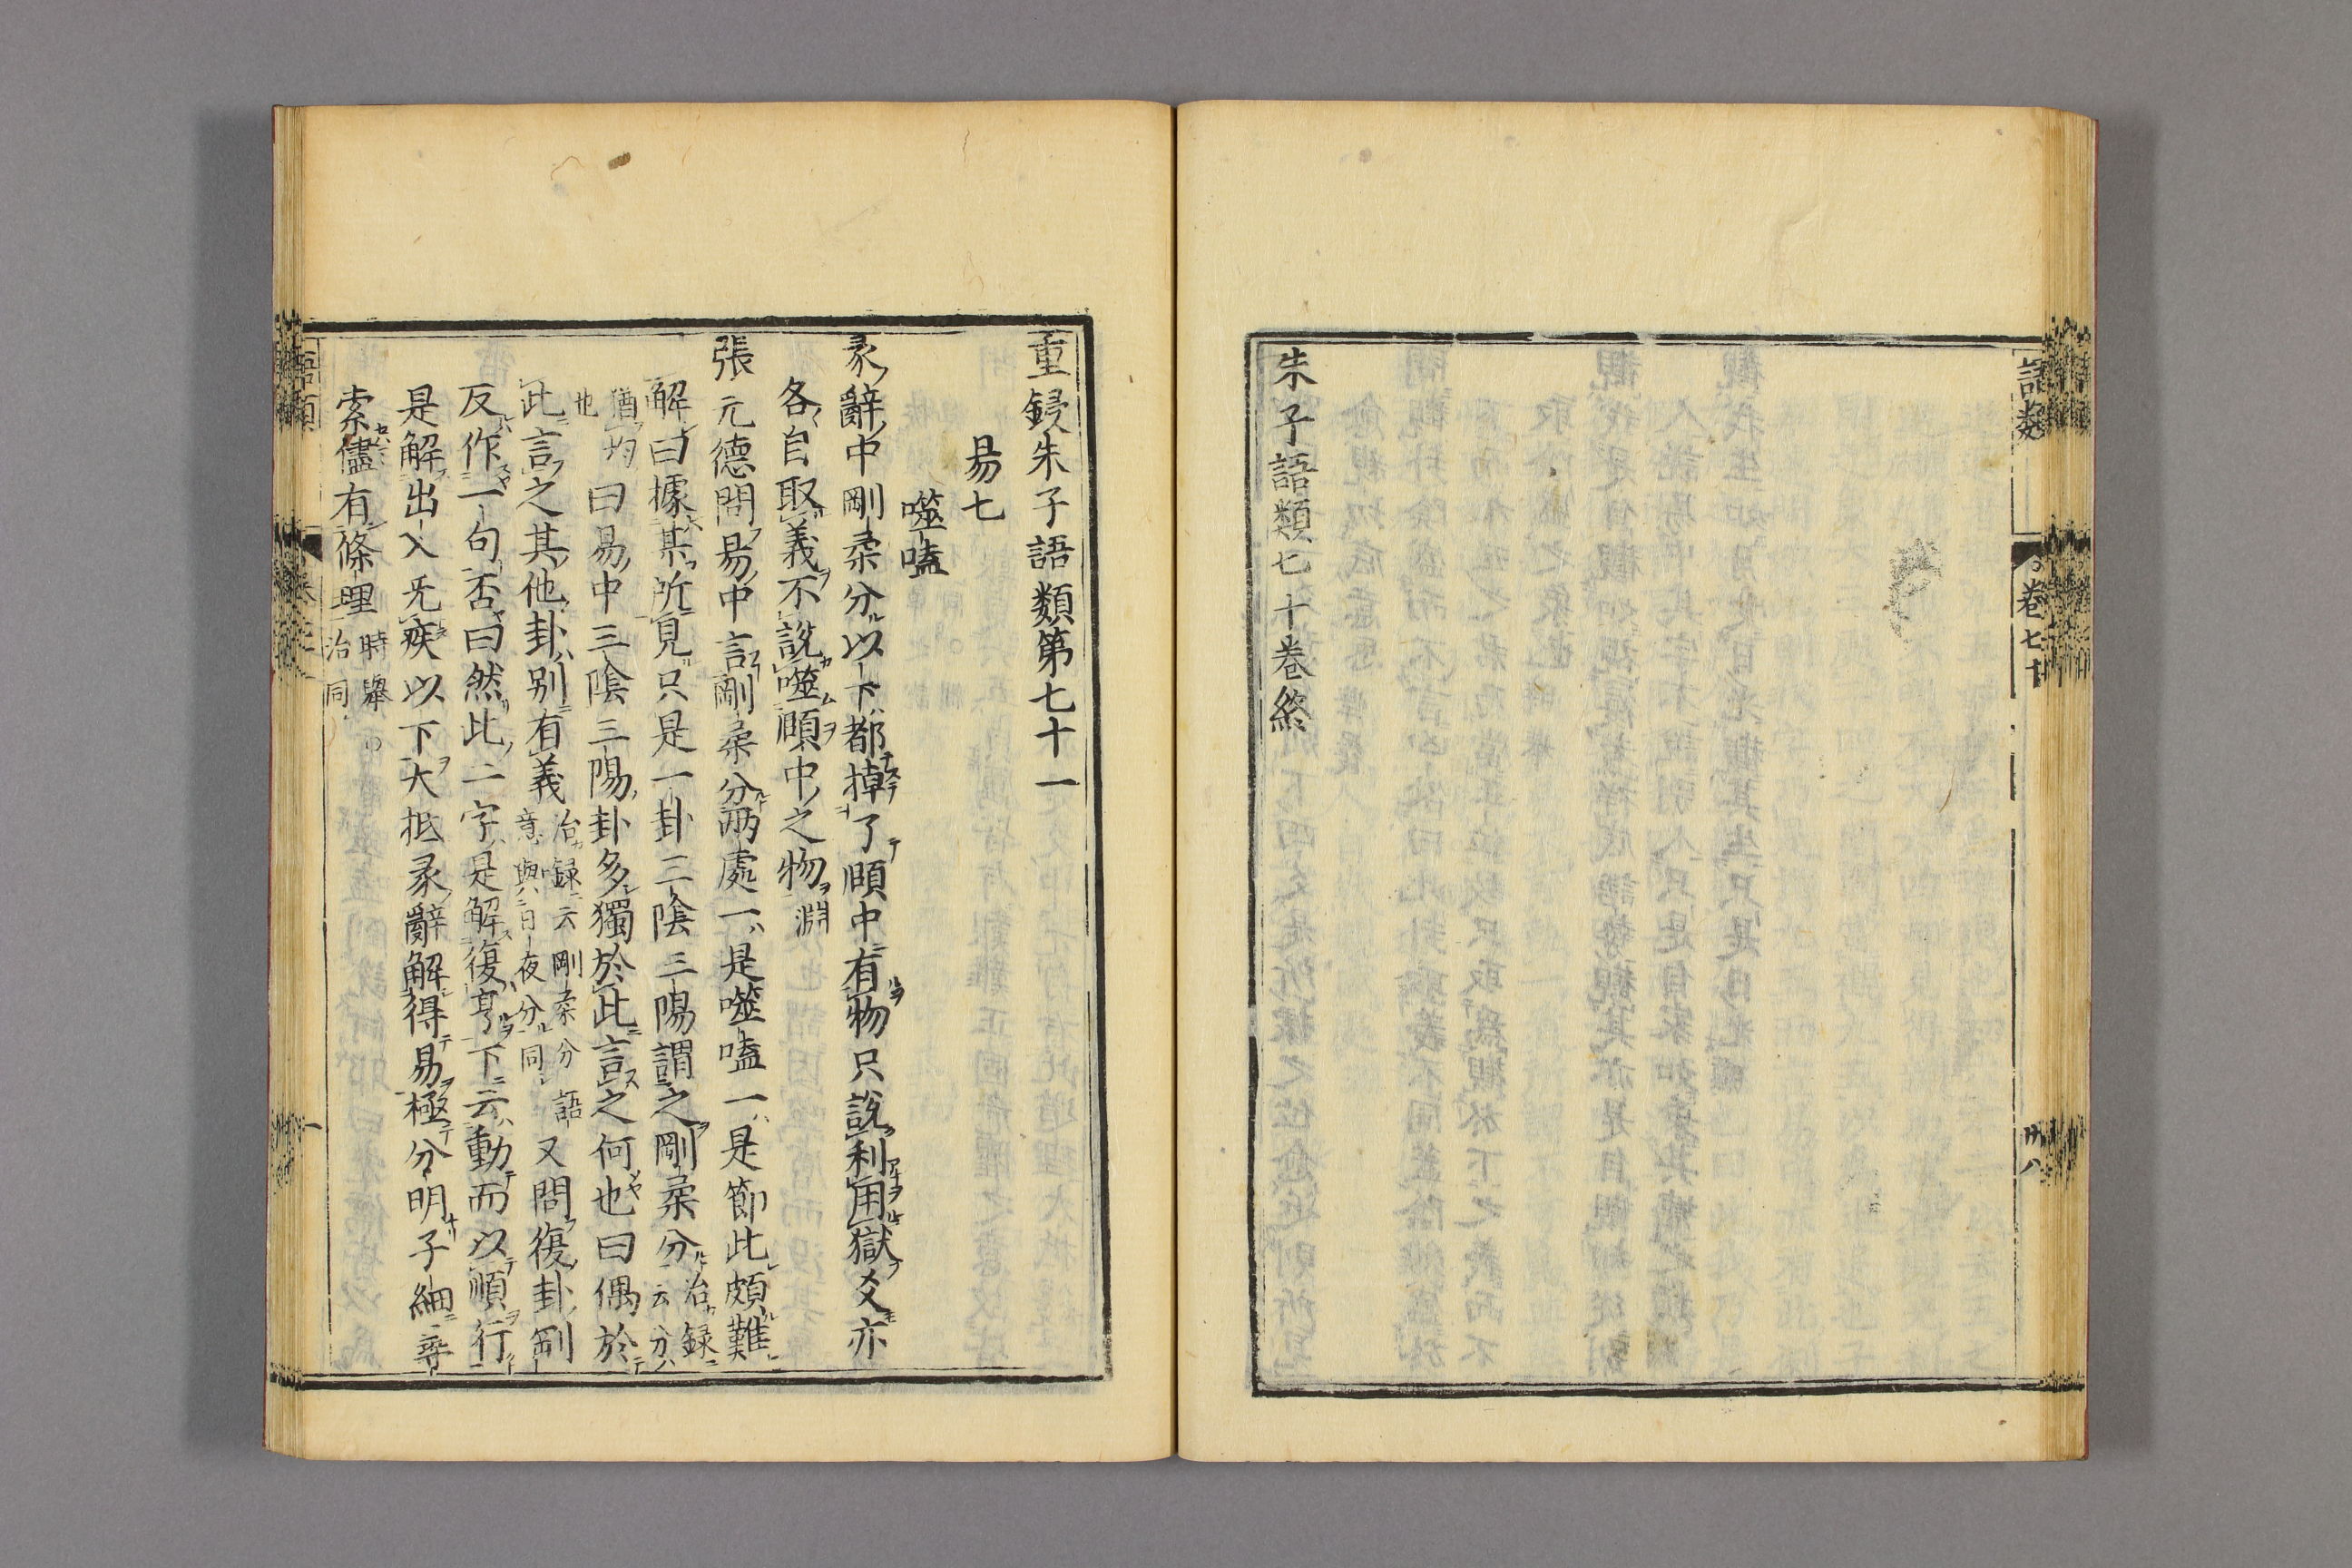 語類
卷七十
廿八
朱子語類七十卷終
重鋟朱子語類第七十一
易七
噬嗑
彖辭中剛柔分以下都掉了頤中有物只說利用獄爻亦
各自取義不說噬頤中之物淵
張元德問易中言剛柔分兩處一是噬嗑一是節此頗難
解曰據某所見只是一卦三陰三陽謂之剛柔分治録云分
猶均也曰易中三陰三陽卦多獨於此言之何也曰偶於
此言之其他卦別有義治録云剛柔分語意與日夜分同又問復卦剛
反作一句否曰然此二字是解復亨下云動而以順行
是解出入无疾以下大抵彖辭解得易極分明子細尋
索儘有條理時舉治同
語類